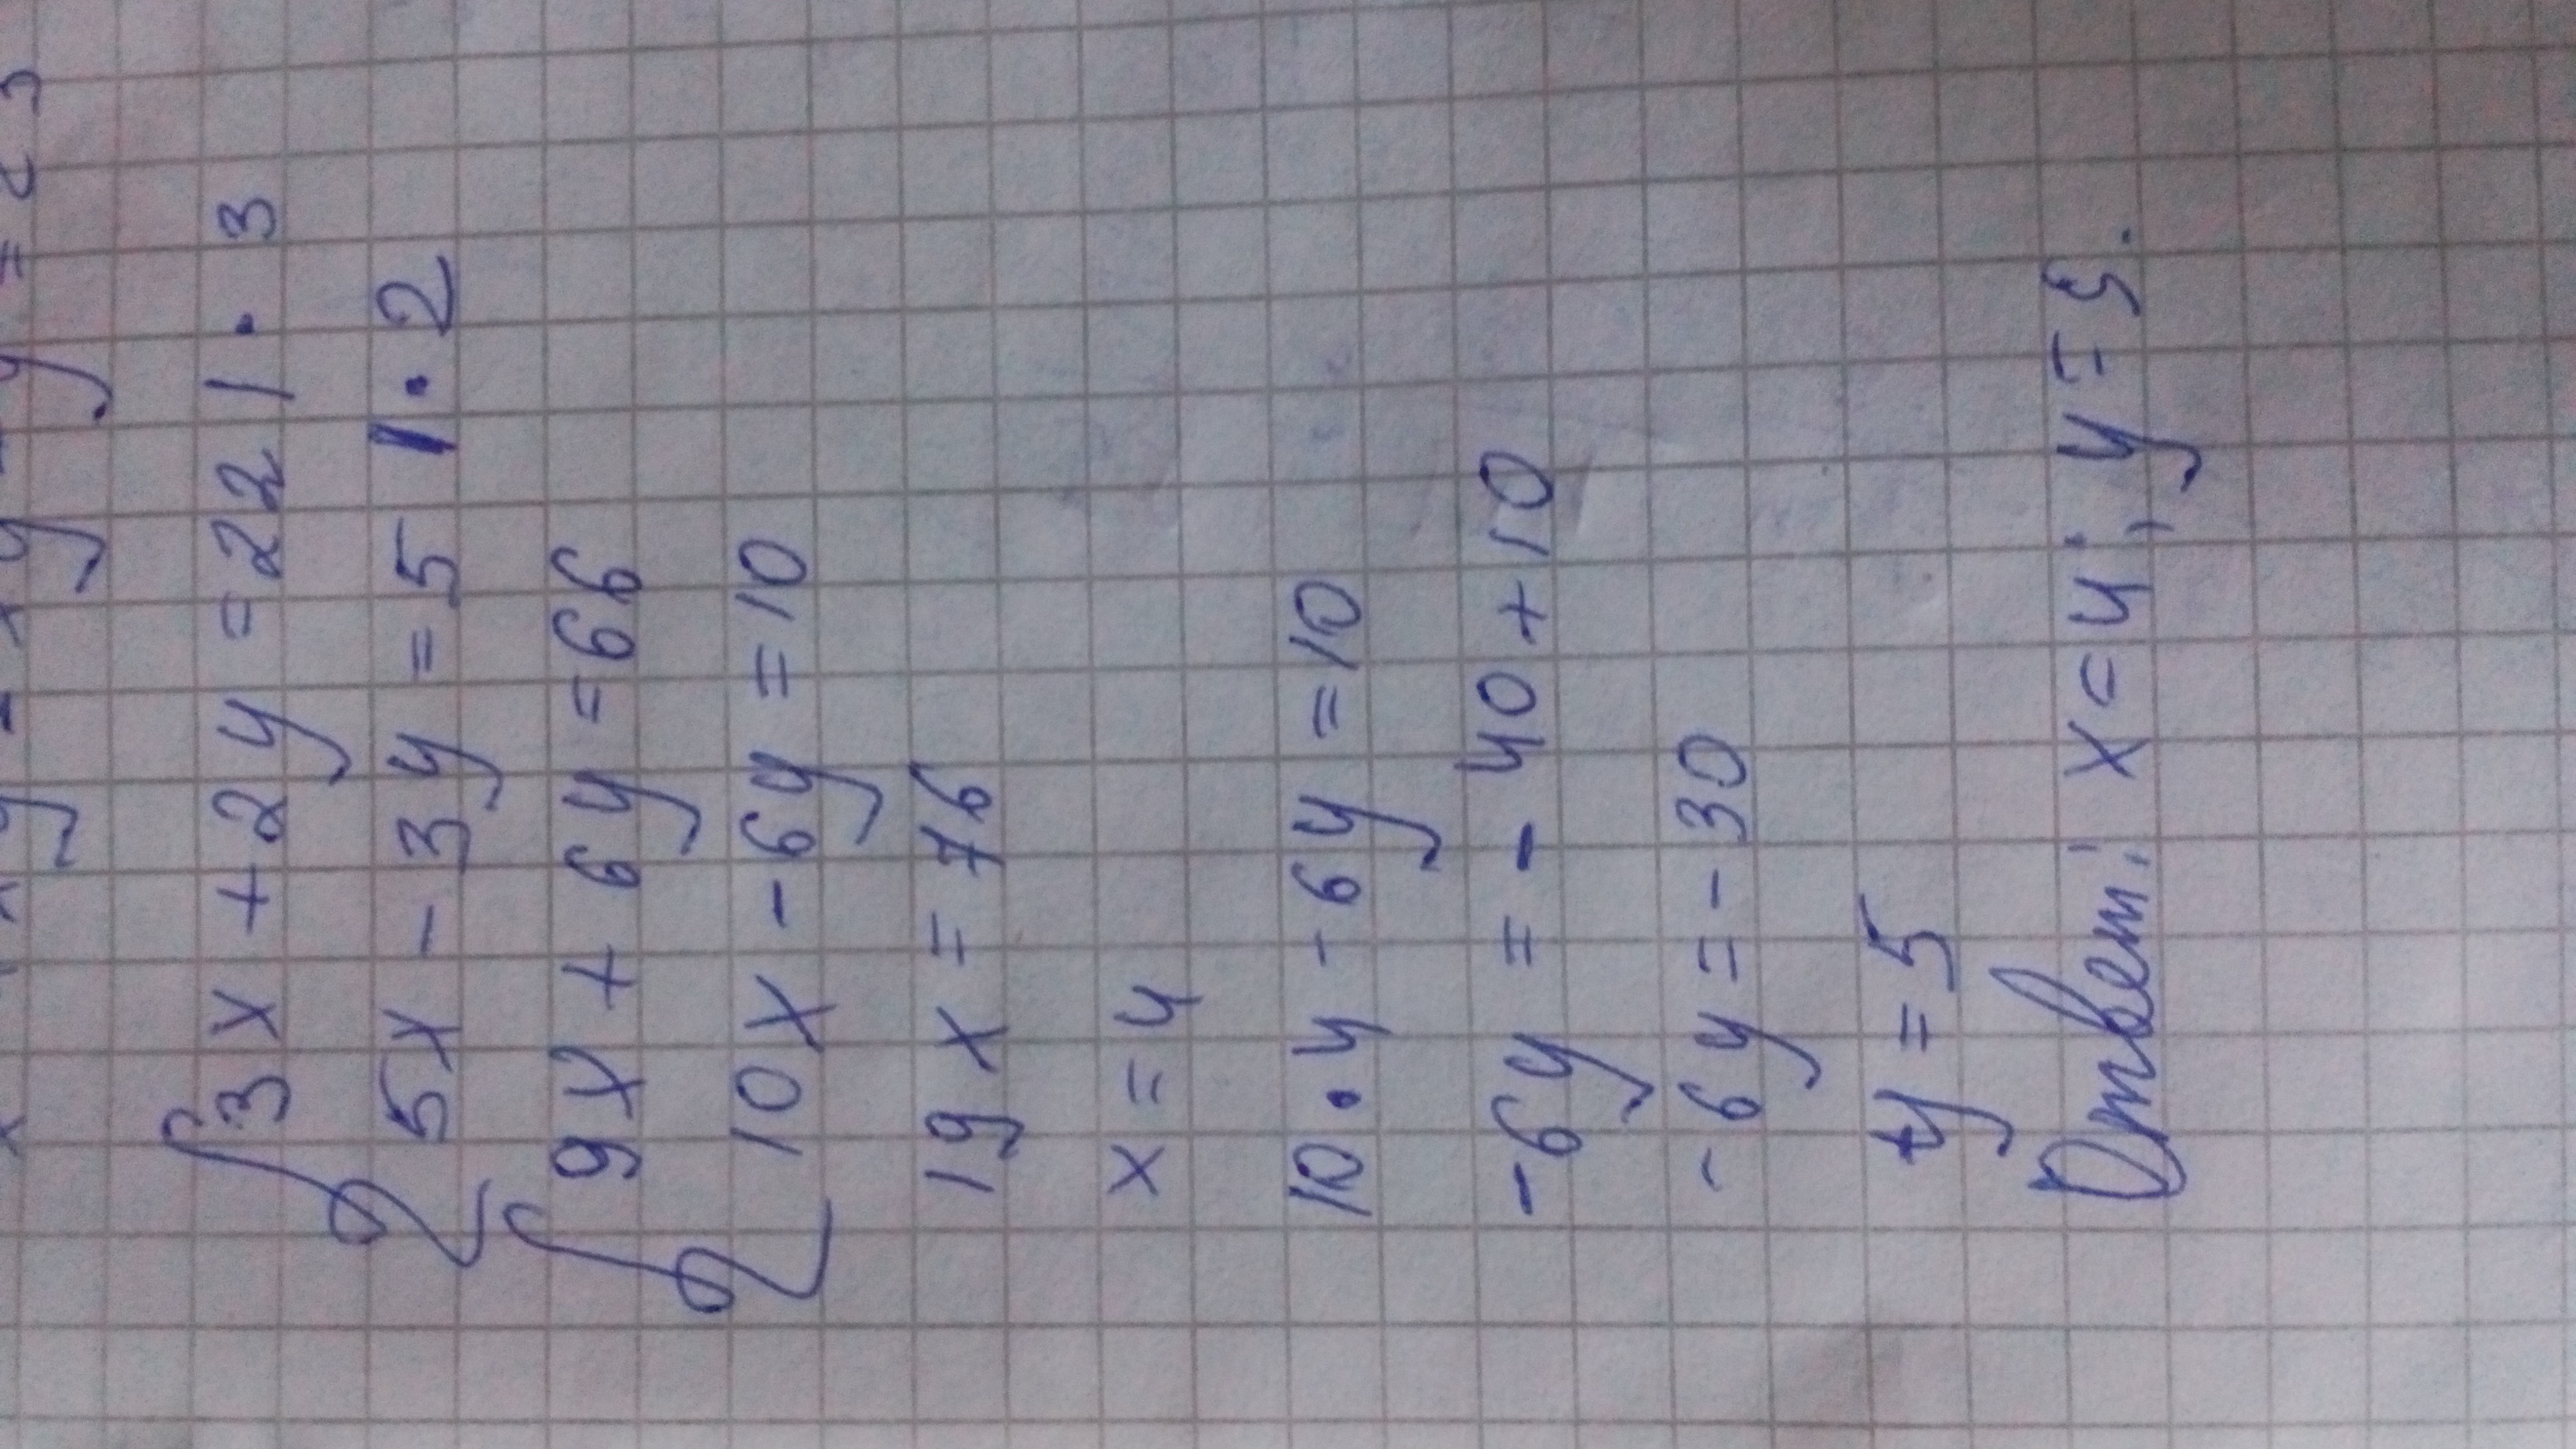 3x + 2y = 22 | · 3
5x - 3y = 5 | · 2
9x + 6y = 66
10x - 6y = 10
19x = 76
x = 4
10 · 4 - 6y = 10
-6y = - 40 + 10
-6y = -30
y = 5
Ответ: x = 4; y = 5.